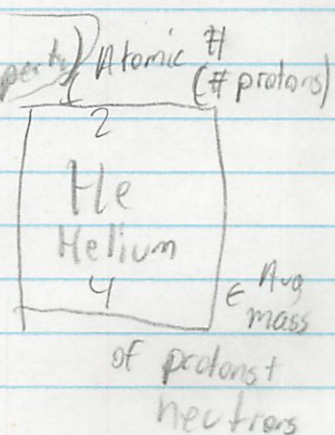 perty) Atomic #
(# protons)
2
He
Helium
4
← Avg
mass
of protons +
neutrons